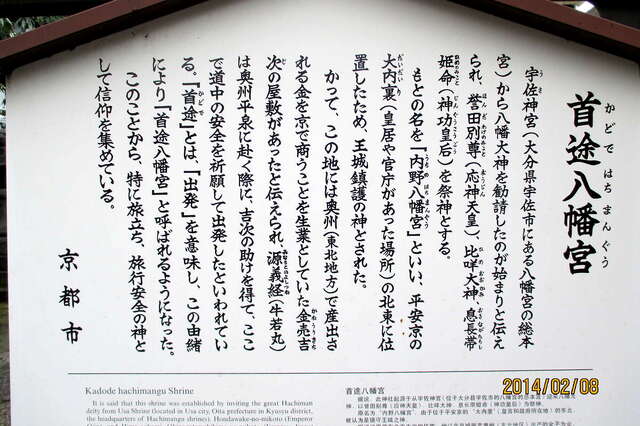 首途八幡宮
かどではちまんぐう
宇佐神宮（大分県宇佐市にある八幡宮の総本
宮）から八幡大神を勧請したのが始まりと伝え
られ、誉田別尊（応神天皇）、比咩大神、息長帯
姫命（神功皇后）を祭神とする。
もとの名を『内野八幡宮』といい、平安京の
大内裏（皇居や官庁があった場所）の北東に位
置したため、王城鎮護の神とされた。
かって、この地には奥州（東北地方）で産出さ
れる金を京で商うことを生業としていた金売吉
次の屋敷があったと伝えられ、源義経（牛若丸）
は奥州平泉に赴く際に、吉次の助けを得て、ここ
で道中の安全を祈願して出発したといわれてい
る。『首途』とは、『出発』を意味し、この由緒
により『首途八幡宮』と呼ばれるようになった。
このことから、特に旅立ち、旅行安全の神と
して信仰を集めている。
京都市
Kadode hachimangu Shrine
It is said that this shrine was established by inviting the great Hachiman
deity from Usa Shrine (located in Usa city, Oita prefecture in Kyusyu district,
the headquarters of Hachimangu shrines). Hondawake-no-mikoto (Emperor
首途八幡宮
2014/02/08